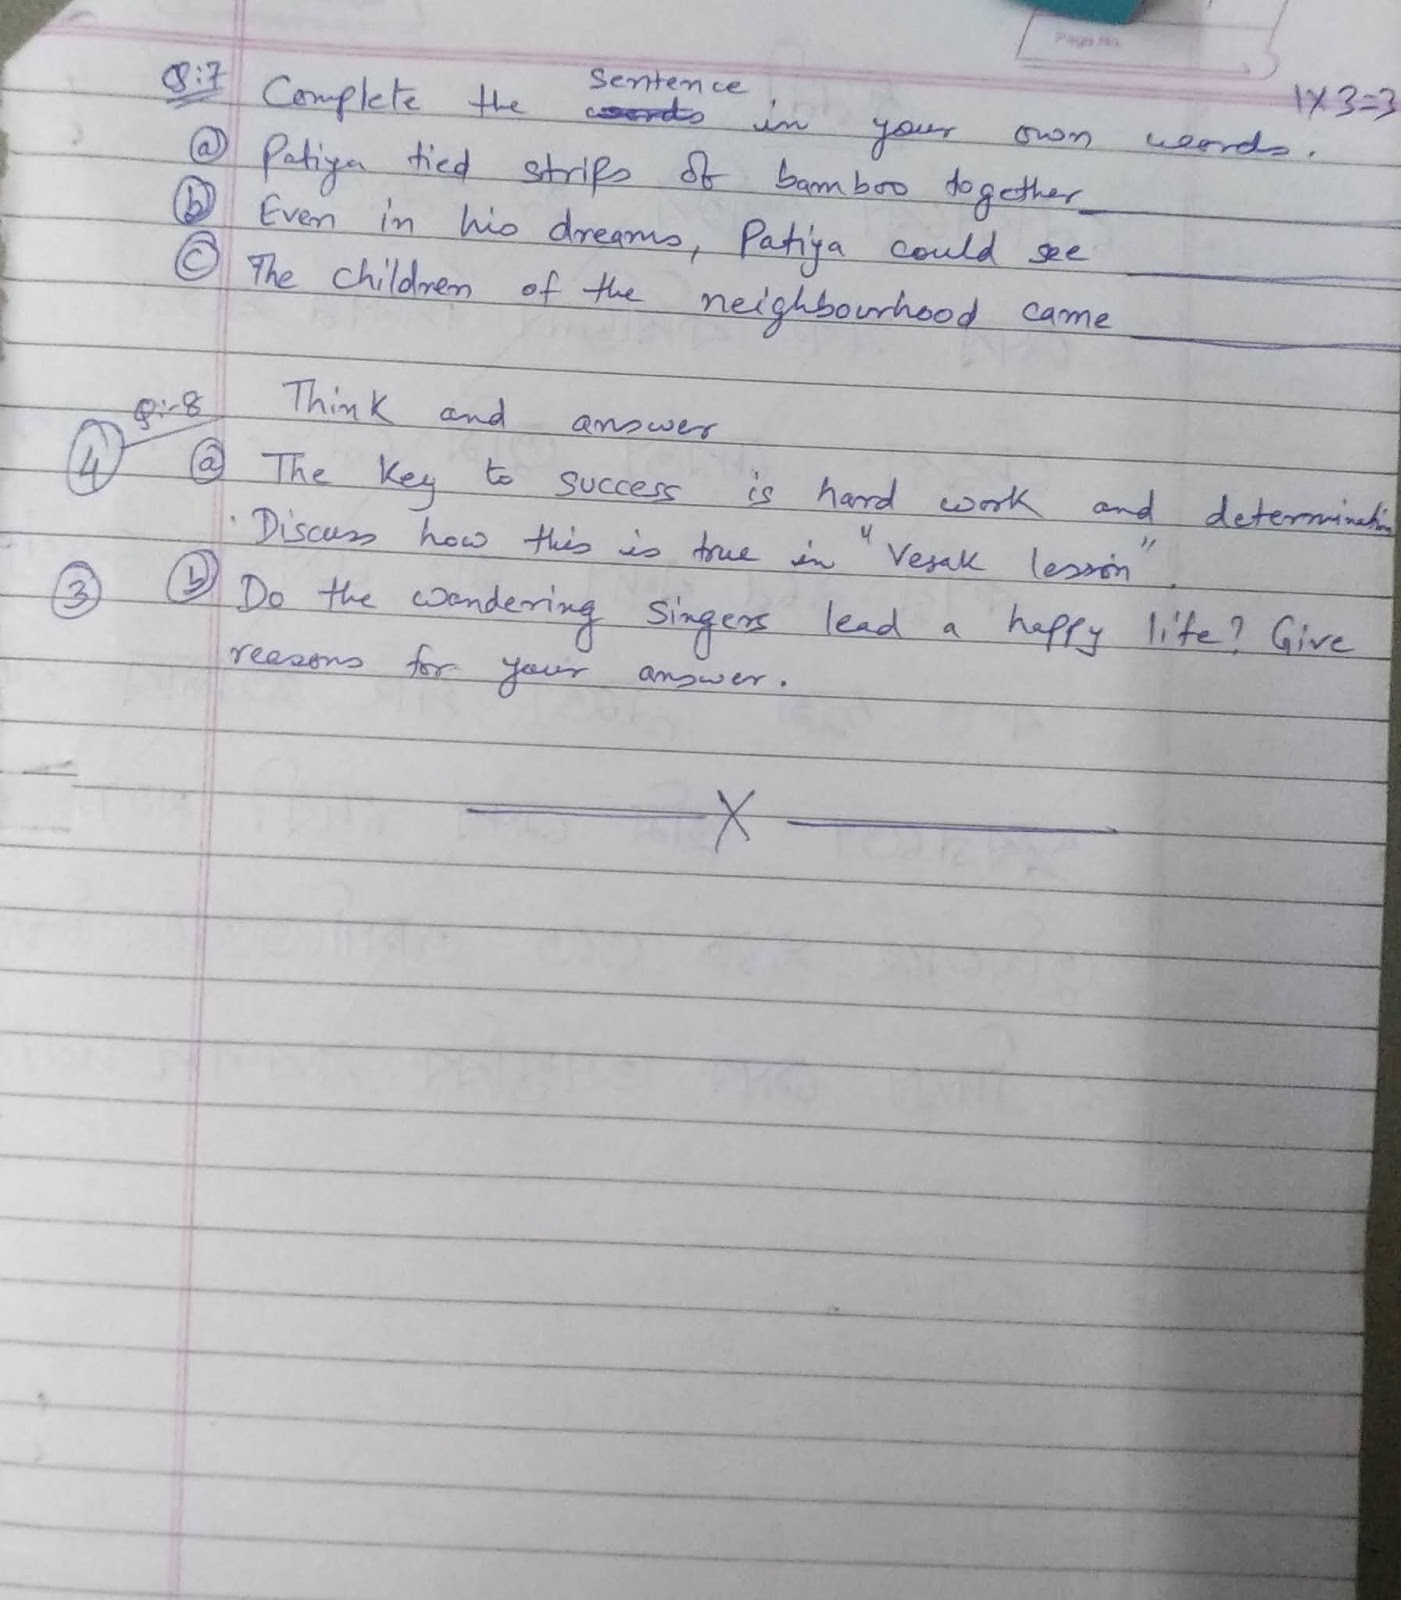 Page No.
Q:7 Complete the sentence in your own words. 1x3=3
(a) Patiya tied strips of bamboo together
(b) Even in his dreams, Patiya could see
(c) The children of the neighbourhood came
Q:-8 Think and answer
(4) (a) The key to success is hard work and determination
. Discuss how this is true in "Vesak lesson".
(3) (b) Do the wandering singers lead a happy life? Give
reasons for your answer.
X